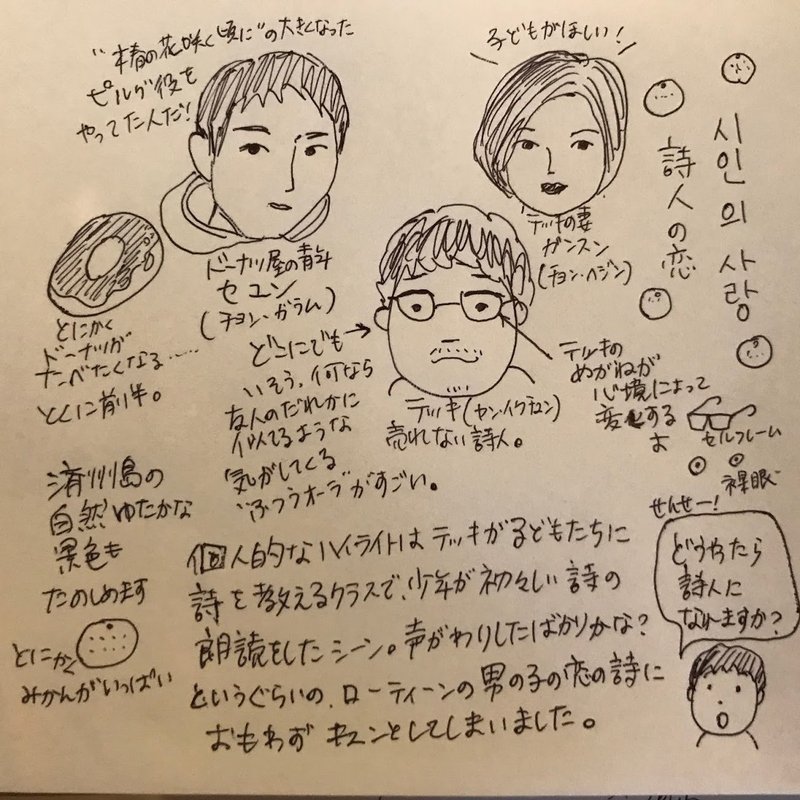 "椿の花咲く頃に"の大きくなった
ピルグ役を
やってた人だ!
子どもがほしい!
시인의 사랑
詩人の恋
テッキの妻
ガンスン
(チョン・ヘジン)
ドーナツ屋の青年
セユン
(チョン・ガラム)
とにかく
ドーナツが
たべたくなる……
とくに前半。
どこにでも
いそう、何なら
友人のだれかに
似てるような
気がしてくる
"ふつうオーラ"がすごい。
テッキ(ヤン・イクチュン)
売れない詩人。
テッキの
めがねが
心境によって
変化する
よ
セルフレーム
裸眼
済州島の
自然ゆたかな
景色も
たのしめます
とにかく
みかんがいっぱい
個人的なハイライトはテッキが子どもたちに
詩を教えるクラスで、少年が初々しい詩の
朗読をしたシーン。声がわりしたばかりかな?
というぐらいの、ローティーンの男の子の恋の詩に
おもわずキュンとしてしまいました。
せんせー!
どうやったら
詩人に
なれますか?